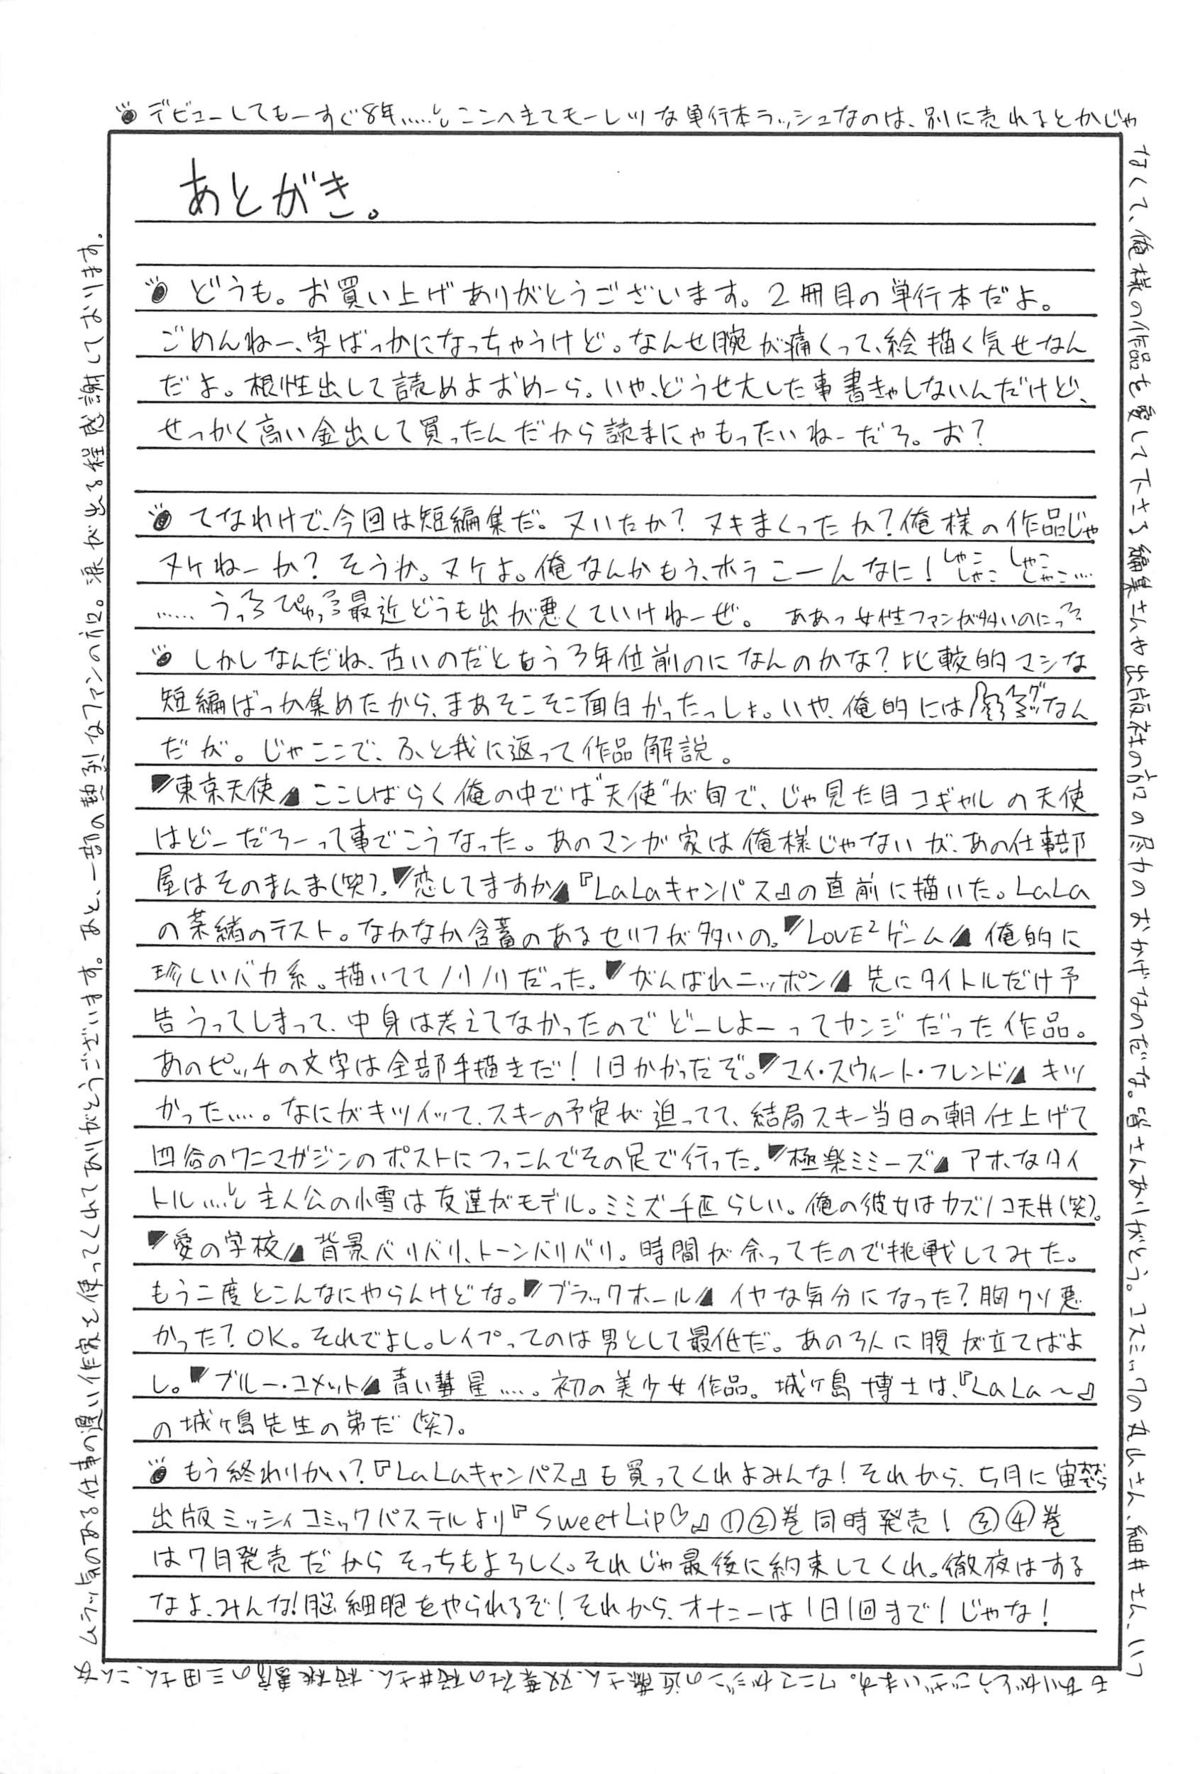 デビューしてもーすぐ8年……。ここへきてモーレツな単行本ラッシュなのは、別に売れるとかじゃ
なくて、俺様の作品を愛して下さる編集さんや出版社の方々の尽力のおかげなのだな。皆さんありがとう。コスミックの丸山さん、細井さん、いつ
もありがとうございます。ワニマガジンの近藤さん、双葉社の桜井さん、桜桃書房の三田さん、こんな
ムラッ気のある仕事の遅い作家を使ってくれてありがとうございます。あと、一部の熱烈なファンの方々。涙が出る程感謝しております。
あとがき。
どうも。お買い上げありがとうございます。2冊目の単行本だよ。
ごめんねー、字ばっかになっちゃうけど。なんせ腕が痛くって、絵描く気せなん
だよ。根性出して読めよおめーら。いや、どうせ大した事書きゃしないんだけど、
せっかく高い金出して買ったんだから読まにゃもったいねーだろ。お?
てなわけで、今回は短編集だ。ヌいたか?ヌキまくったか?俺様の作品じゃ
ヌケねーか?そうか。ヌケよ。俺なんかもう、ホラこーんなに!しゃこしゃこしゃこしゃこ……
……うっろぴゅっろ最近どうも出が悪くていけねーぜ。ああっ女性ファンが多いのにっろ
しかしなんだね、古いのだともう3年位前のになんのかな?比較的マシな
短編ばっか集めたから、まあそこそこ面白かったっしょ。いや、俺的には なん
だが。じゃここで、ふと我に返って作品解説。
〝東京天使〟ここしばらく俺の中では"天使"が旬で、じゃ見た目コギャルの天使
はどーだろーって事でこうなった。あのマンガ家は俺様じゃないが、あの仕事部
屋はそのまんま(笑)。〝恋してますか〟『LaLaキャンパス』の直前に描いた。LaLa
の茶緒のテスト。なかなか含蓄のあるセリフが多いの。〝LOVE²ゲーム〟俺的に
珍しいバカ系。描いててノリノリだった。〝がんばれニッポン〟先にタイトルだけ予
告うってしまって、中身は考えてなかったのでどーしよーってカンジだった作品。
あのピッチの文字は全部手描きだ!1日かかっだぞ。〝マイ・スウィート・フレンド〟キツ
かった……。なにがキツイって、スキーの予定が迫ってて、結局スキー当日の朝仕上げて
四谷のワニマガジンのポストにつっこんでその足で行った。〝極楽ミミーズ〟アホなタイ
トル……。主人公の小雪は友達がモデル。ミミズ千匹らしい。俺の彼女はカズノコ天井(笑)。
〝愛の学校〟背景バリバリ、トーンバリバリ。時間が余ってたので挑戦してみた。
もう二度とこんなにやらんけどな。〝ブラックホール〟イヤな気分になった?胸クソ悪
かった?OK。それでよし。レイプってのは男として最低だ。あの3人に腹が立てばよ
し。〝ブルー・コメット〟青い彗星……。初の美少女作品。城ヶ島博士は、『LaLa〜』
の城ヶ島先生の弟だ(笑)。
もう終わりかい?『LaLaキャンパス』も買ってくれよみんな!それから、5月に宙
出版ミッシィコミックパステルより『Sweet Lip♡』の①②巻同時発売!③④巻
は7月発売だからそっちもよろしく。それじゃ最後に約束してくれ。徹夜はする
なよ、みんな!脳細胞をやられるぞ!それから、オナニーは1日1回まで!じゃな!